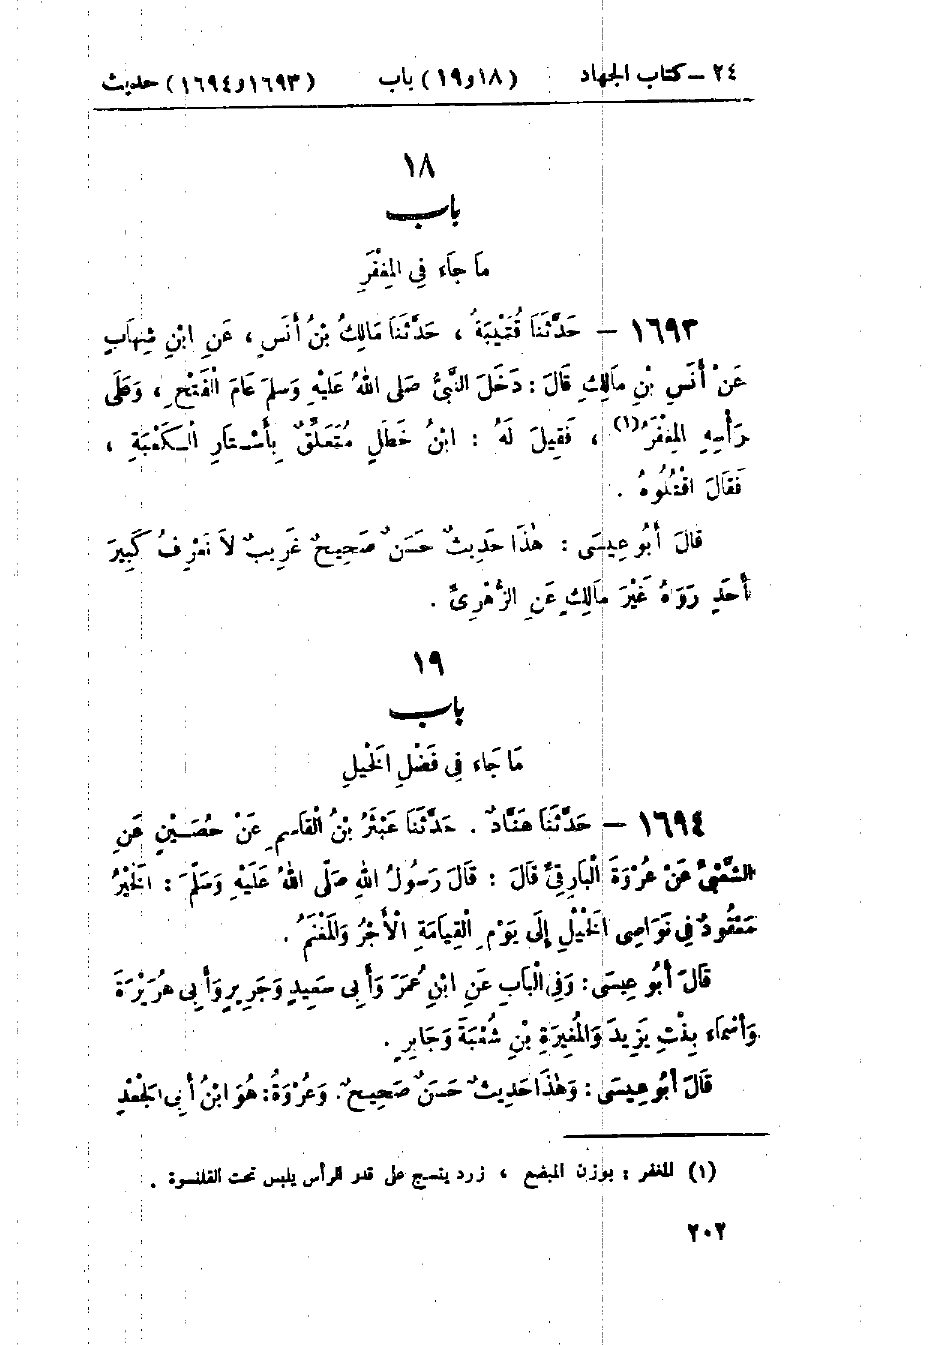 ٢٤ – كتاب الجهاد (١٨ و ١٩) باب (١٦٩٣ و ١٦٩٤) حديث
١٨
باب
مَا جَاءَ فِي المِغْفَرِ
١٦٩٣ – حَدَّثَنَا قُتَيْبَةُ ، حَدَّثَنَا مَالِكُ بْنُ أَنَسٍ ، عَنِ ابْنِ شِهَابٍ
عَنْ أَنَسِ بْنِ مَالِكٍ قَالَ : دَخَلَ النَّبِيُّ صَلى اللهُ عَلَيْهِ وَسلمَ عَامَ الْفَتْحِ ، وَعَلَى
رَأْسِهِ المِغْفَرُ(١) ، فَقِيلَ لَهُ : ابْنُ خَطَلٍ مُتَعَلِّقٌ بِأَسْتَارِ الْكَعْبَةِ ،
فَقَالَ اقْتُلُوهُ .
قَالَ أَبُو عِيسَى : هٰذَا حَدِيثٌ حَسَنٌ صَحِيحٌ غَرِيبٌ لاَ نَعْرِفُ كَبِيرَ
أَحَدٍ رَوَاهُ غَيْرَ مَالِكٍ عَنِ الزُّهْرِيِّ .
١٩
باب
مَا جَاءَ فِي فَضْلِ الخَيْلِ
١٦٩٤ – حَدَّثَنَا هَنَّادٌ . حَدَّثَنَا عَبْثَرُ بْنُ الْقَاسِمِ عَنْ حُصَيْنٍ عَنِ
الشَّعْبِيِّ عَنْ عُرْوَةَ الْبَارِقِيِّ قَالَ : قَالَ رَسُولُ اللهِ صَلَّى اللهُ عَلَيْهِ وَسَلَّمَ : الخَيْرُ
مَعْقُودٌ فِي نَوَاصِي الخَيْلِ إِلَى يَوْمِ الْقِيَامَةِ الْأَجْرُ وَالمَغْنَمُ .
قَالَ أَبُو عِيسَى : وَفِي الْبَابِ عَنِ ابْنِ عُمَرَ وَأَبِي سَعِيدٍ وَجَرِيرٍ وَأَبِي هُرَيْرَةَ
وَأَسْمَاءَ بِنْتِ يَزِيدَ وَالمُغِيرَةِ بْنِ شُعْبَةَ وَجَابِرٍ .
قَالَ أَبُو عِيسَى : وَهٰذَا حَدِيثٌ حَسَنٌ صَحِيحٌ . وَعُرْوَةُ : هُوَ ابْنُ أَبِي الجَعْدِ
(١) المغفر : بوزن المبضع ، زرد ينسج على قدر الرأس يلبس تحت القلنسوة .
٢٠٢